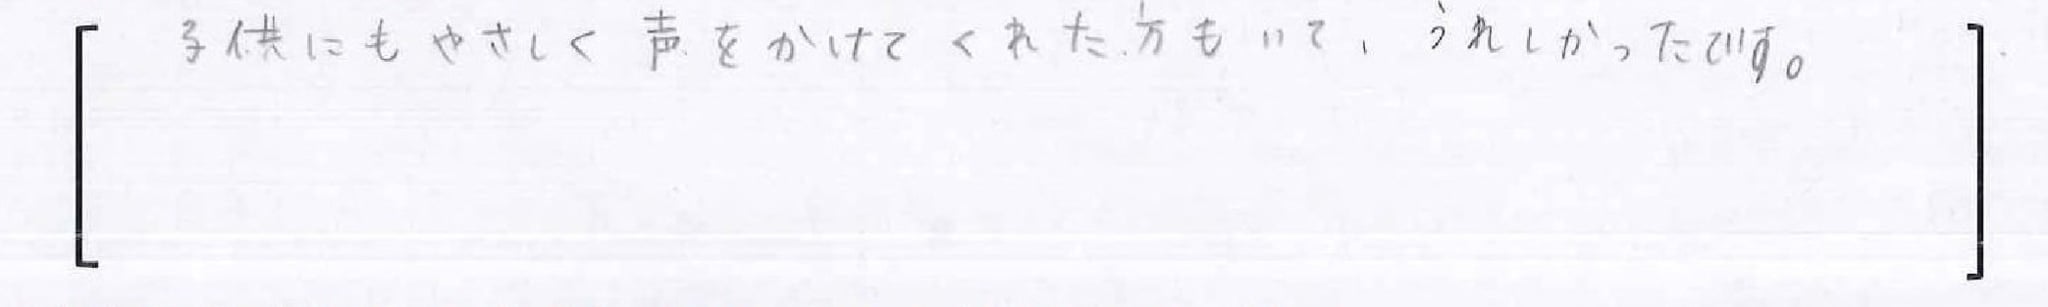 子供にもやさしく声をかけてくれた方もいて、うれしかったです。